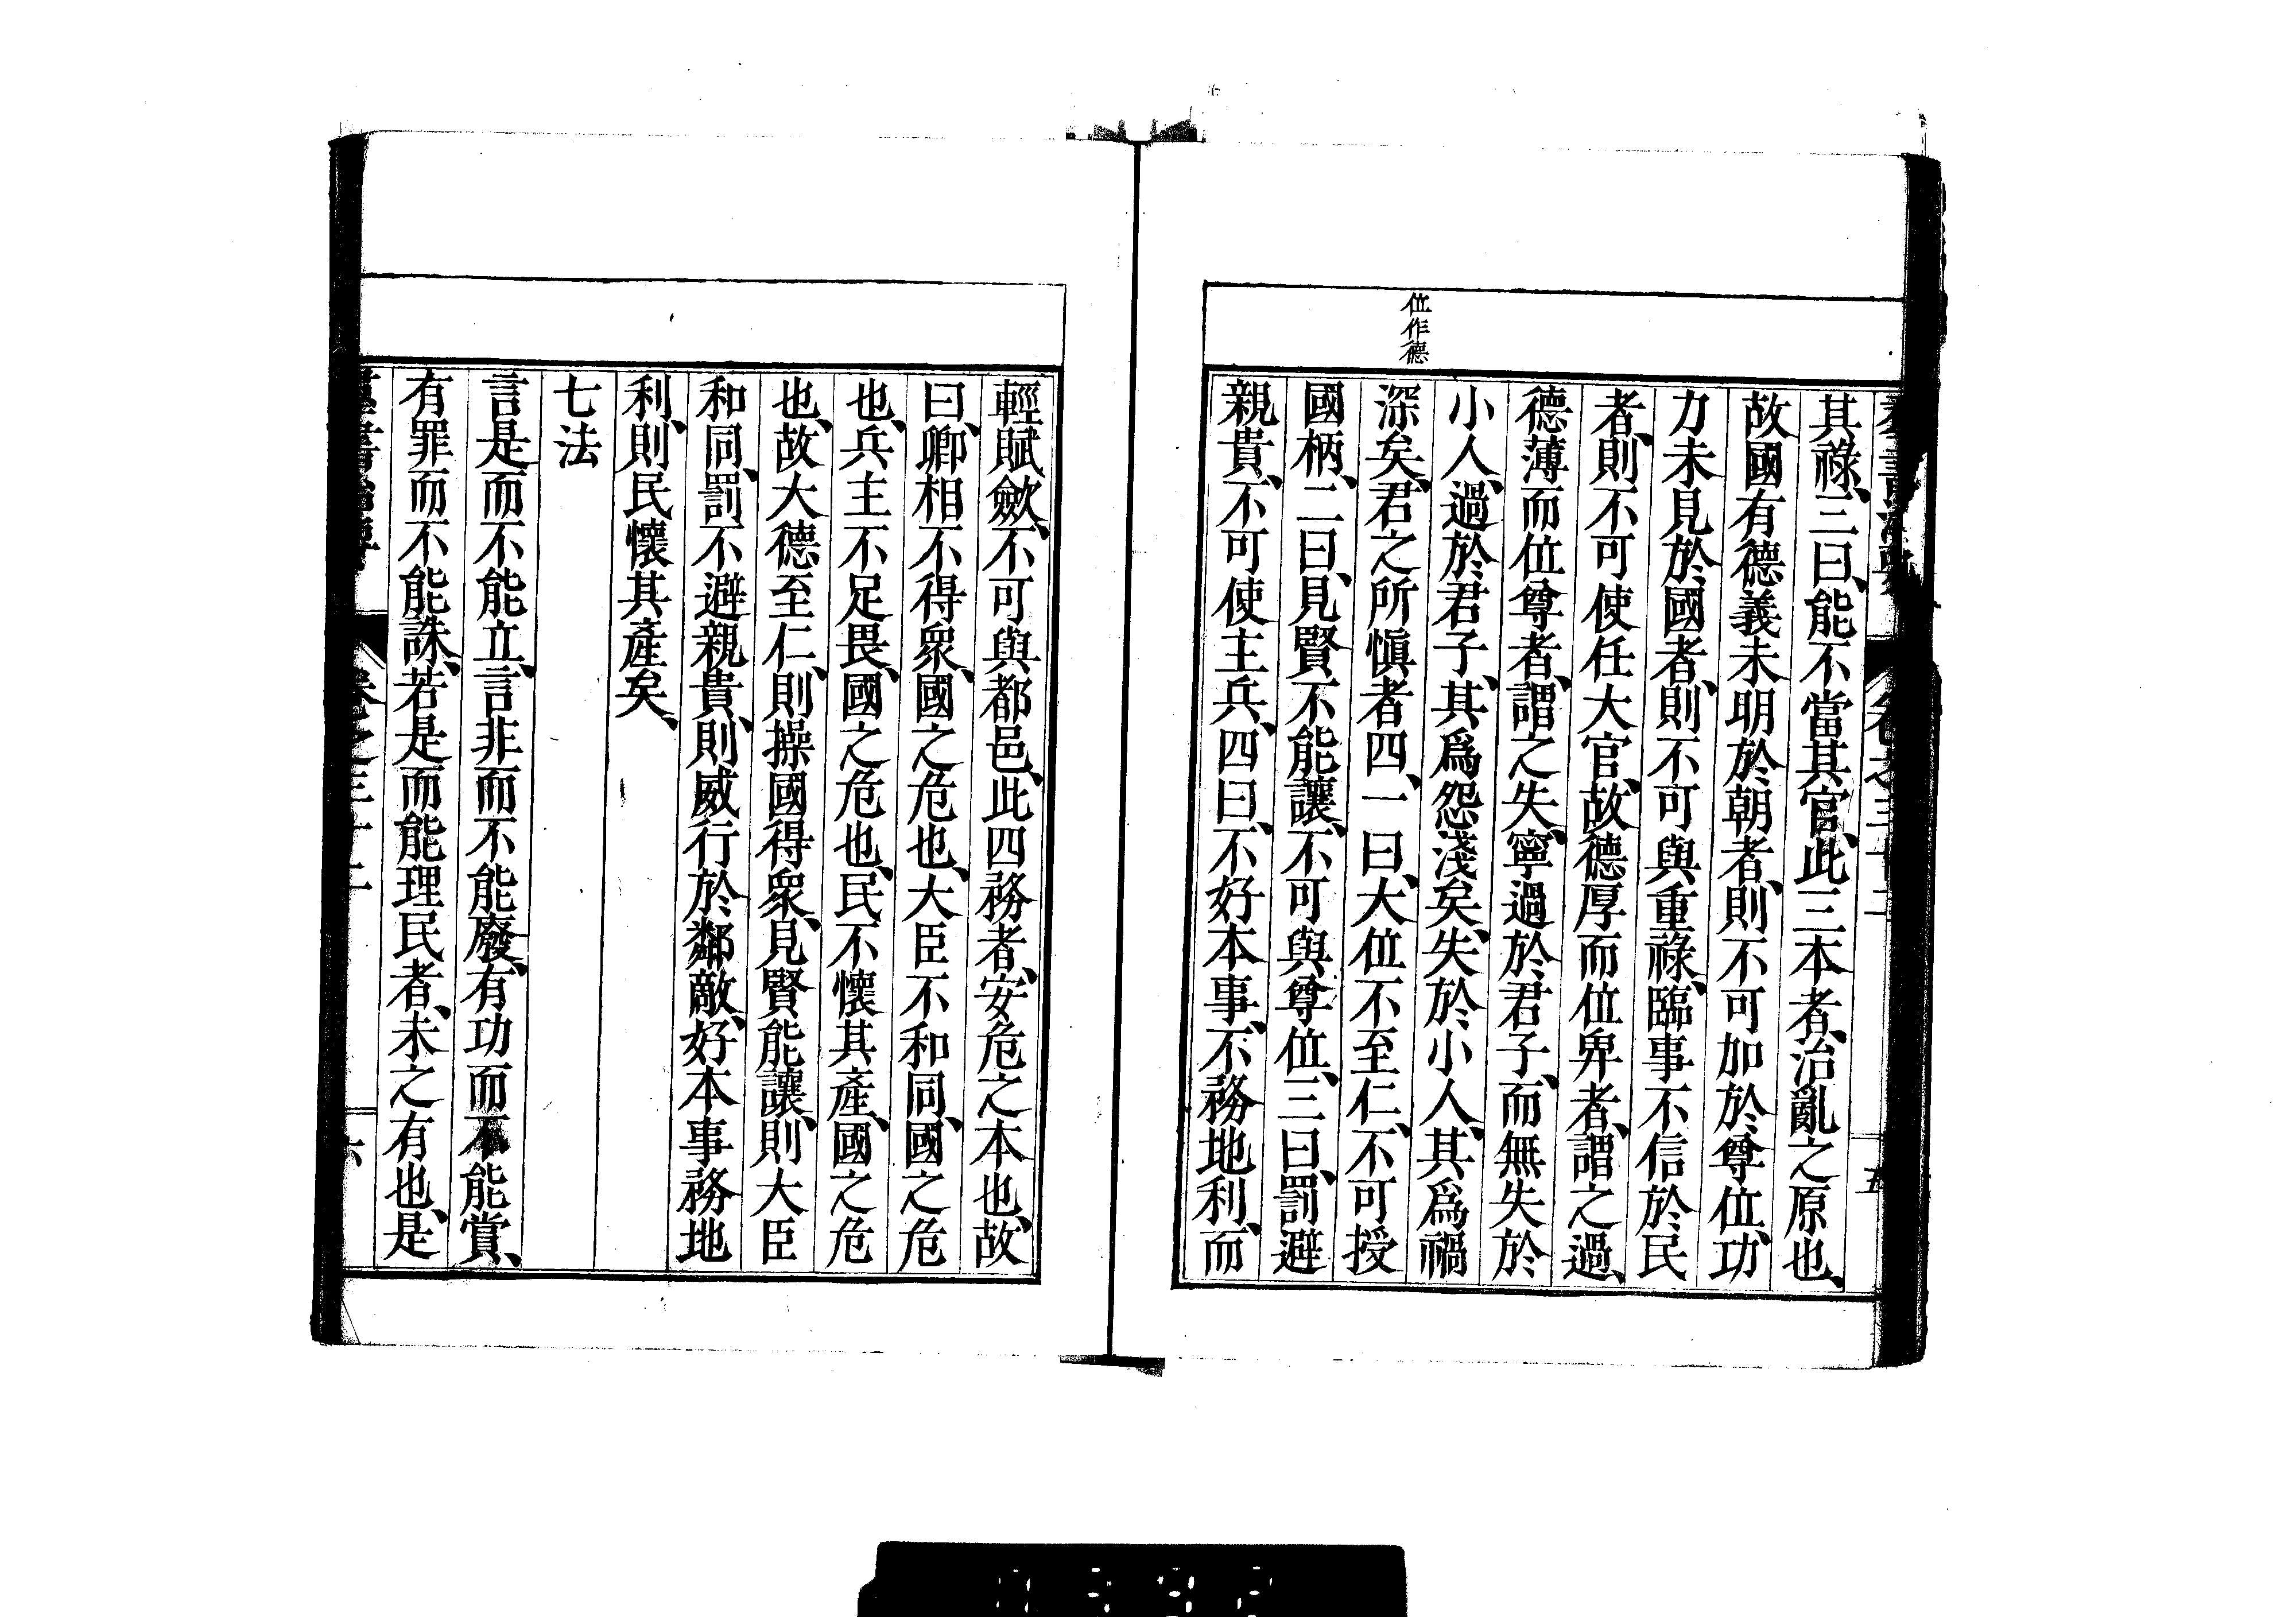 位作德
其祿、三曰、能不當其官、此三本者、治亂之原也、
故國有德義未明於朝者、則不可加於尊位、功
力未見於國者、則不可與重祿、臨事不信於民
者、則不可使任大官、故德厚而位卑者、謂之過、
德薄而位尊者、謂之失、寧過於君子、而無失於
小人、過於君子、其爲怨淺矣、失於小人、其爲禍
深矣、君之所愼者四、一曰、大位不至仁、不可授
國柄、二曰、見賢不能讓、不可與尊位、三曰、罰避
親貴、不可使主兵、四曰、不好本事、不務地利、而
輕賦斂、不可與都邑、此四務者、安危之本也、故
曰、卿相不得衆、國之危也、大臣不和同、國之危
也、兵主不足畏、國之危也、民不懷其產、國之危
也、故大德至仁、則操國得衆、見賢能讓、則大臣
和同、罰不避親貴、則威行於鄰敵、好本事務地
利、則民懷其產矣、
七法
言是而不能立、言非而不能廢、有功而不能賞、
有罪而不能誅、若是而能理民者、未之有也、是